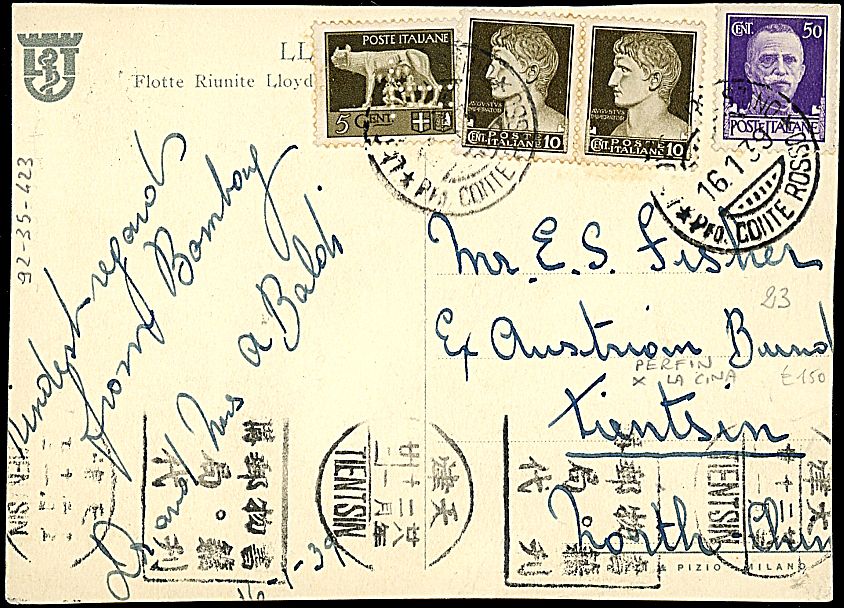 LT
LL
Flotte Riunite Lloyd
POSTE ITALIANE
5 CENT.
AVGVSTVS
IMPERATOR
CENT. POSTE ITALIANE 10
AVGVSTVS
IMPERATOR
CENT. POSTE ITALIANE 10
CENT. 50
POSTE ITALIANE
PFO. CONTE ROSSO
16.1.39
PFO. CONTE ROSSO
92-35-423
Kindest regards
from Bombay
Mrs a Baldi
16-1-39
Mr. E. S. Fisher
Ex Austrian Bund
Tientsin
North Chin
23
PERFIN
X LA CINA
£150
天津
廿八年
十二月
TIENTSIN
郵
局
代
天津
TIENTSIN
郵
局
代
TIENTSIN
PIZZI & PIZIO - MILANO